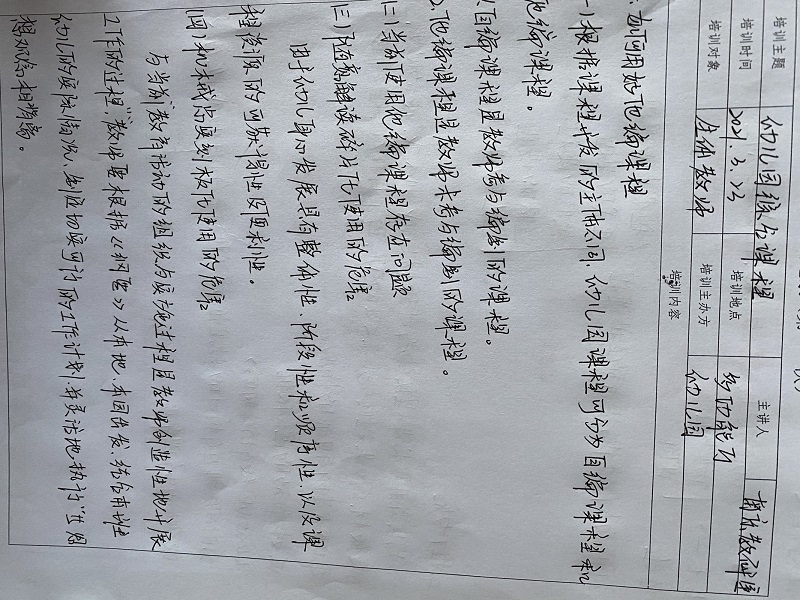 培训主题 幼儿园综合课程 主讲人 南京教研室
培训时间 2021.3.23 培训地点 多功能厅
培训对象 全体教师 培训主办方 幼儿园
培训内容
如何用好他编课程
一)根据课程开发的主体不同,幼儿园课程可分为自编课程和
他编课程。
1.自编课程是教师参与编制的课程。
2.他编课程是教师未参与编制的课程。
(二)当前使用他编课程存在问题
(三)随意解读碎片化使用的危害
由于幼儿身心发展具有整体性、阶段性和顺序性,以及课
程资源的可获得性及便利性。
(四)机械忠实刻板化使用的危害
与当前"教育活动的组织与实施过程是教师创造性地开展
工作的过程","教师要根据《纲要》从本地、本园出发,结合本班
幼儿的实际情况,制定切实可行的工作计划,并灵活地执行"的思
想观念相背离。